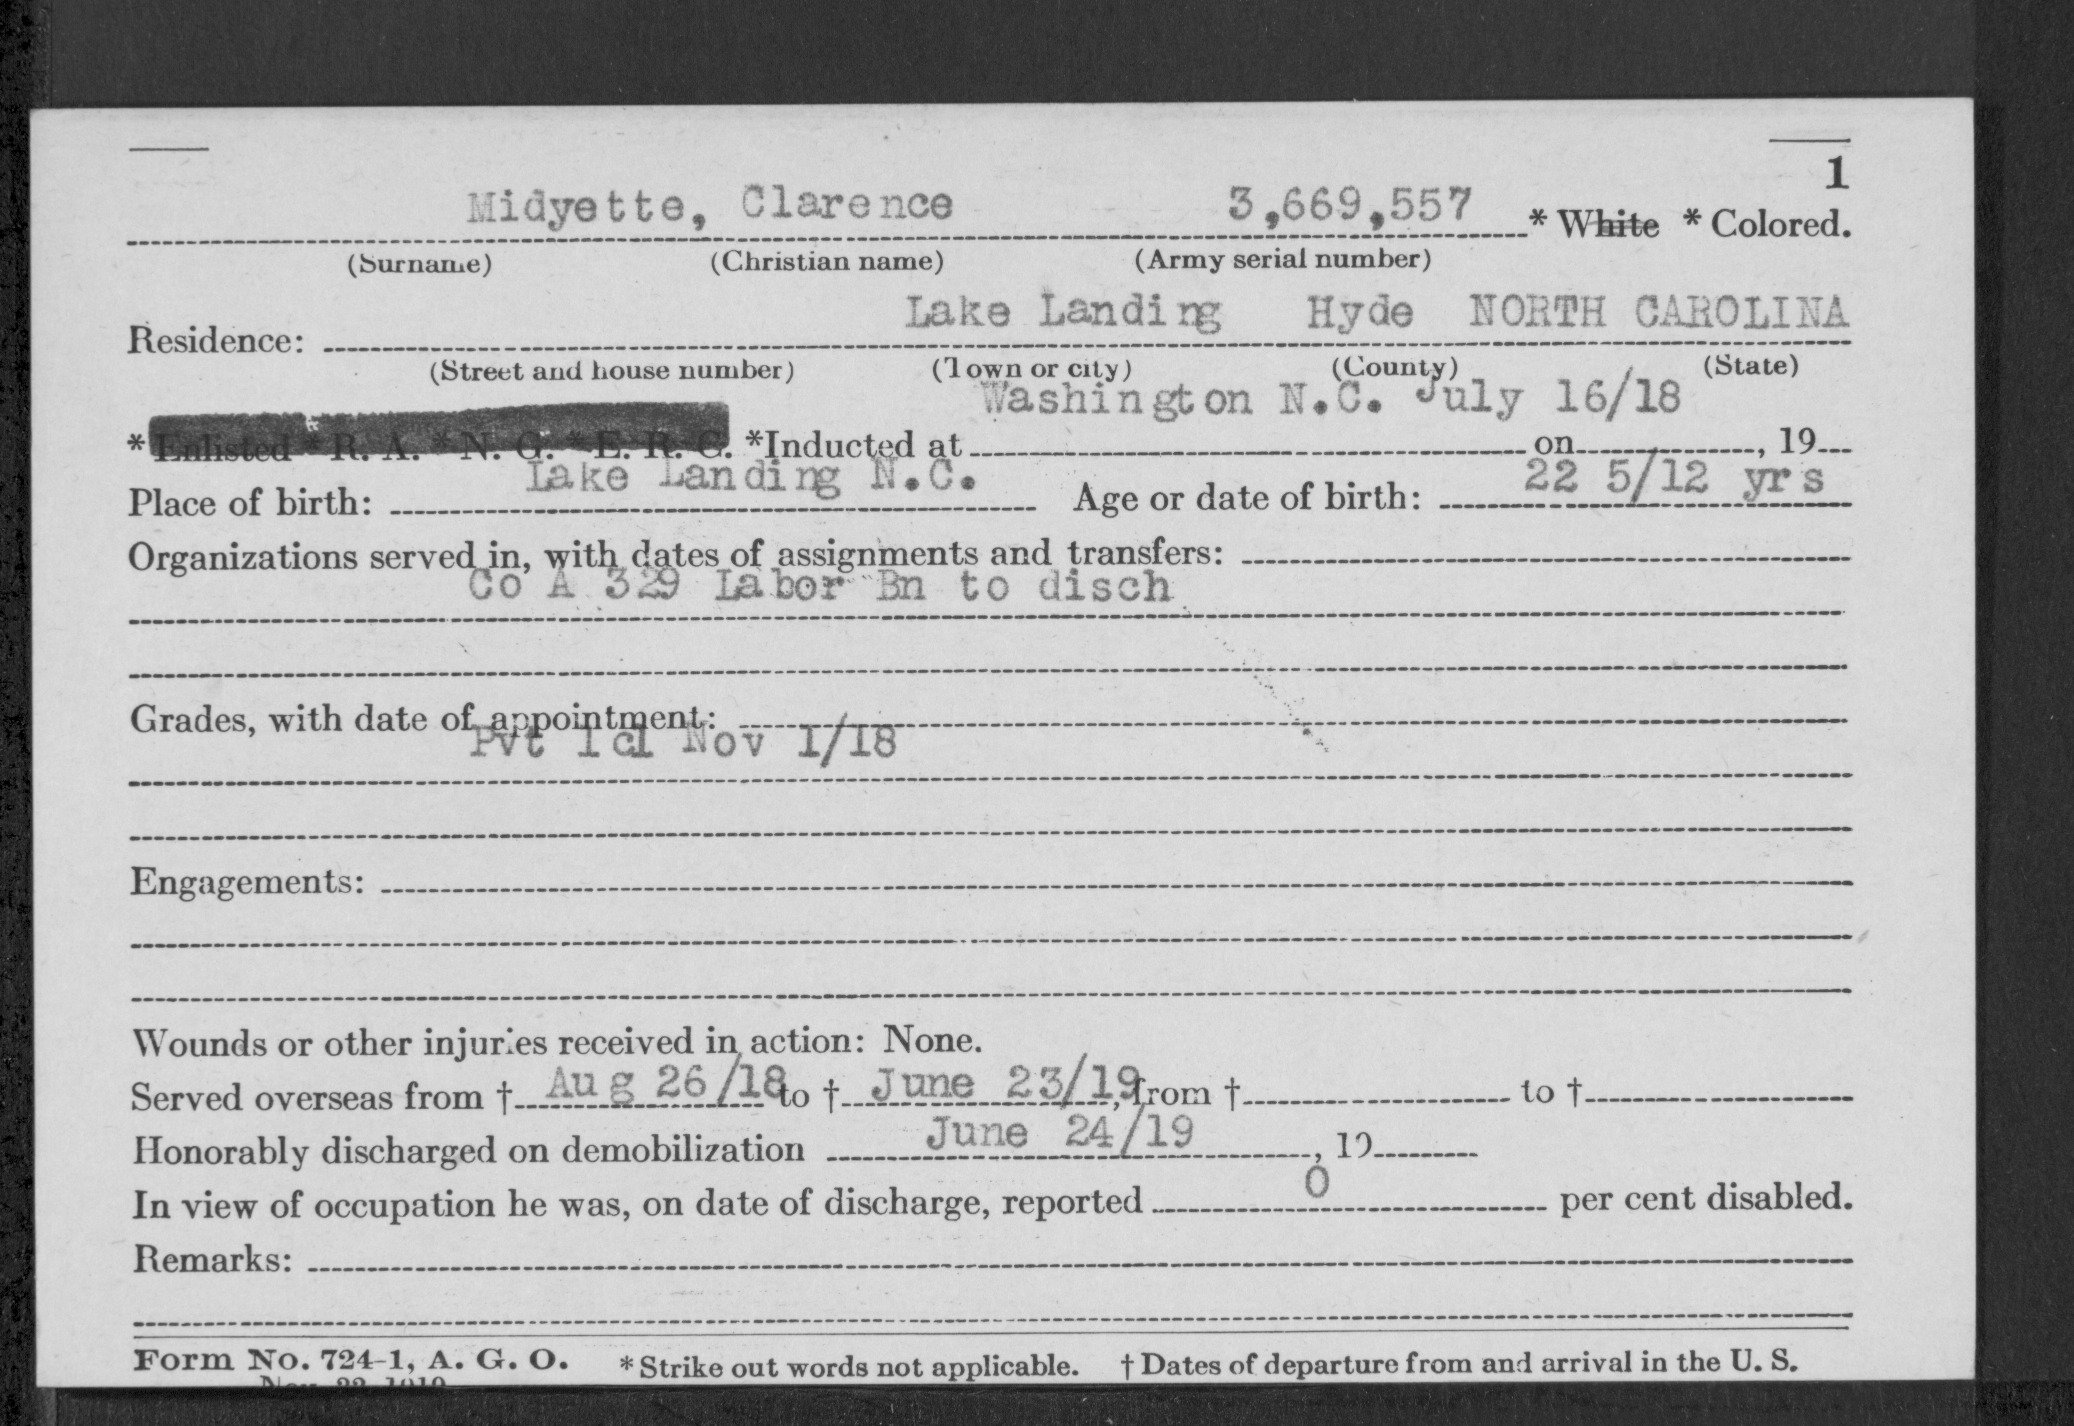 1
Midyette, Clarence 3,669,557 * White * Colored.
(Surname) (Christian name) (Army serial number)
Lake Landing Hyde NORTH CAROLINA
Residence:
(Street and house number) (Town or city) (County) (State)
Washington N.C. July 16/18
* Enlisted * R. A. * N. G. * E. R. C. *Inducted at on , 19
Lake Landing N.C. 22 5/12 yrs
Place of birth: Age or date of birth:
Organizations served in, with dates of assignments and transfers:
Co A 329 Labor Bn to disch
Grades, with date of appointment:
Pvt 1cl Nov 1/18
Engagements:
Wounds or other injuries received in action: None.
Served overseas from † Aug 26/18 to † June 23/19, from † to †
Honorably discharged on demobilization June 24/19, 19
In view of occupation he was, on date of discharge, reported 0 per cent disabled.
Remarks:
Form No. 724-1, A. G. O. * Strike out words not applicable. † Dates of departure from and arrival in the U. S.